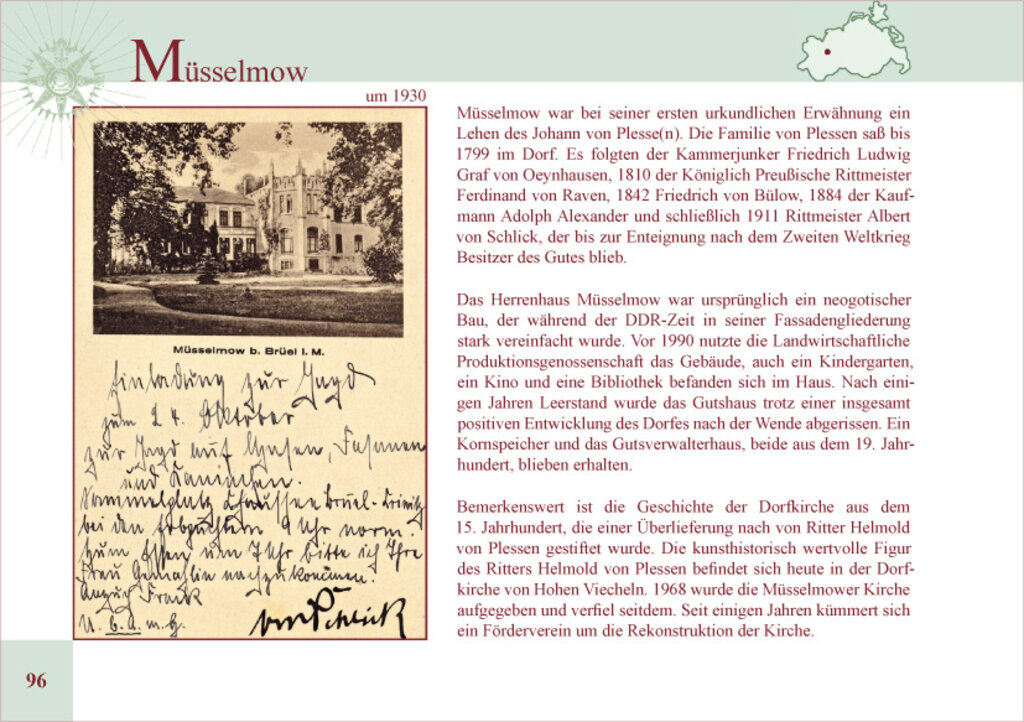 Müsselmow
um 1930
Müsselmow b. Brüel i. M.
Einladung zur Jagd
zum 24. Oktober
zur Jagd auf Hasen, Fasanen
und Kaninchen.
Sammelplatz Chaussee Brüel-Crivitz
bei den 9 Uhr vorm.
Zum Essen um 7 Uhr bitte ich Ihre
Frau Gemahlin nachzukommen.
Anzug Frack
U. A. w. g.
von Schlick
Müsselmow war bei seiner ersten urkundlichen Erwähnung ein
Lehen des Johann von Plesse(n). Die Familie von Plessen saß bis
1799 im Dorf. Es folgten der Kammerjunker Friedrich Ludwig
Graf von Oeynhausen, 1810 der Königlich Preußische Rittmeister
Ferdinand von Raven, 1842 Friedrich von Bülow, 1884 der Kauf-
mann Adolph Alexander und schließlich 1911 Rittmeister Albert
von Schlick, der bis zur Enteignung nach dem Zweiten Weltkrieg
Besitzer des Gutes blieb.
Das Herrenhaus Müsselmow war ursprünglich ein neogotischer
Bau, der während der DDR-Zeit in seiner Fassadengliederung
stark vereinfacht wurde. Vor 1990 nutzte die Landwirtschaftliche
Produktionsgenossenschaft das Gebäude, auch ein Kindergarten,
ein Kino und eine Bibliothek befanden sich im Haus. Nach eini-
gen Jahren Leerstand wurde das Gutshaus trotz einer insgesamt
positiven Entwicklung des Dorfes nach der Wende abgerissen. Ein
Kornspeicher und das Gutsverwalterhaus, beide aus dem 19. Jahr-
hundert, blieben erhalten.
Bemerkenswert ist die Geschichte der Dorfkirche aus dem
15. Jahrhundert, die einer Überlieferung nach von Ritter Helmold
von Plessen gestiftet wurde. Die kunsthistorisch wertvolle Figur
des Ritters Helmold von Plessen befindet sich heute in der Dorf-
kirche von Hohen Viecheln. 1968 wurde die Müsselmower Kirche
aufgegeben und verfiel seitdem. Seit einigen Jahren kümmert sich
ein Förderverein um die Rekonstruktion der Kirche.
96